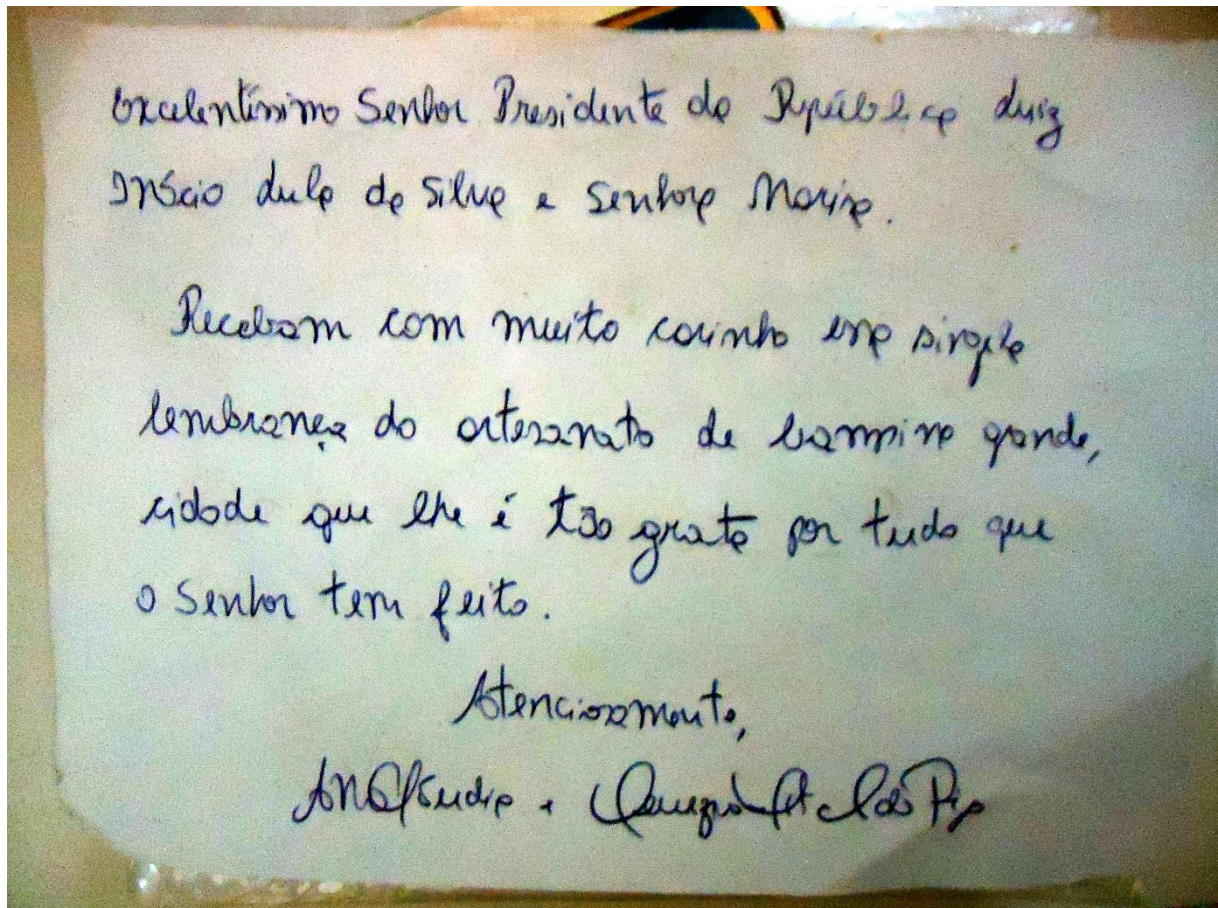 Excelentíssimo Senhor Presidente da República Luiz
Inácio Lula da Silva e Senhora Marisa.
Recebam com muito carinho essa simples
lembrança do artesanato de Campina grande,
cidade que lhe é tão grata por tudo que
o Senhor tem feito.
Atenciosamente,
Ana Cláudia e